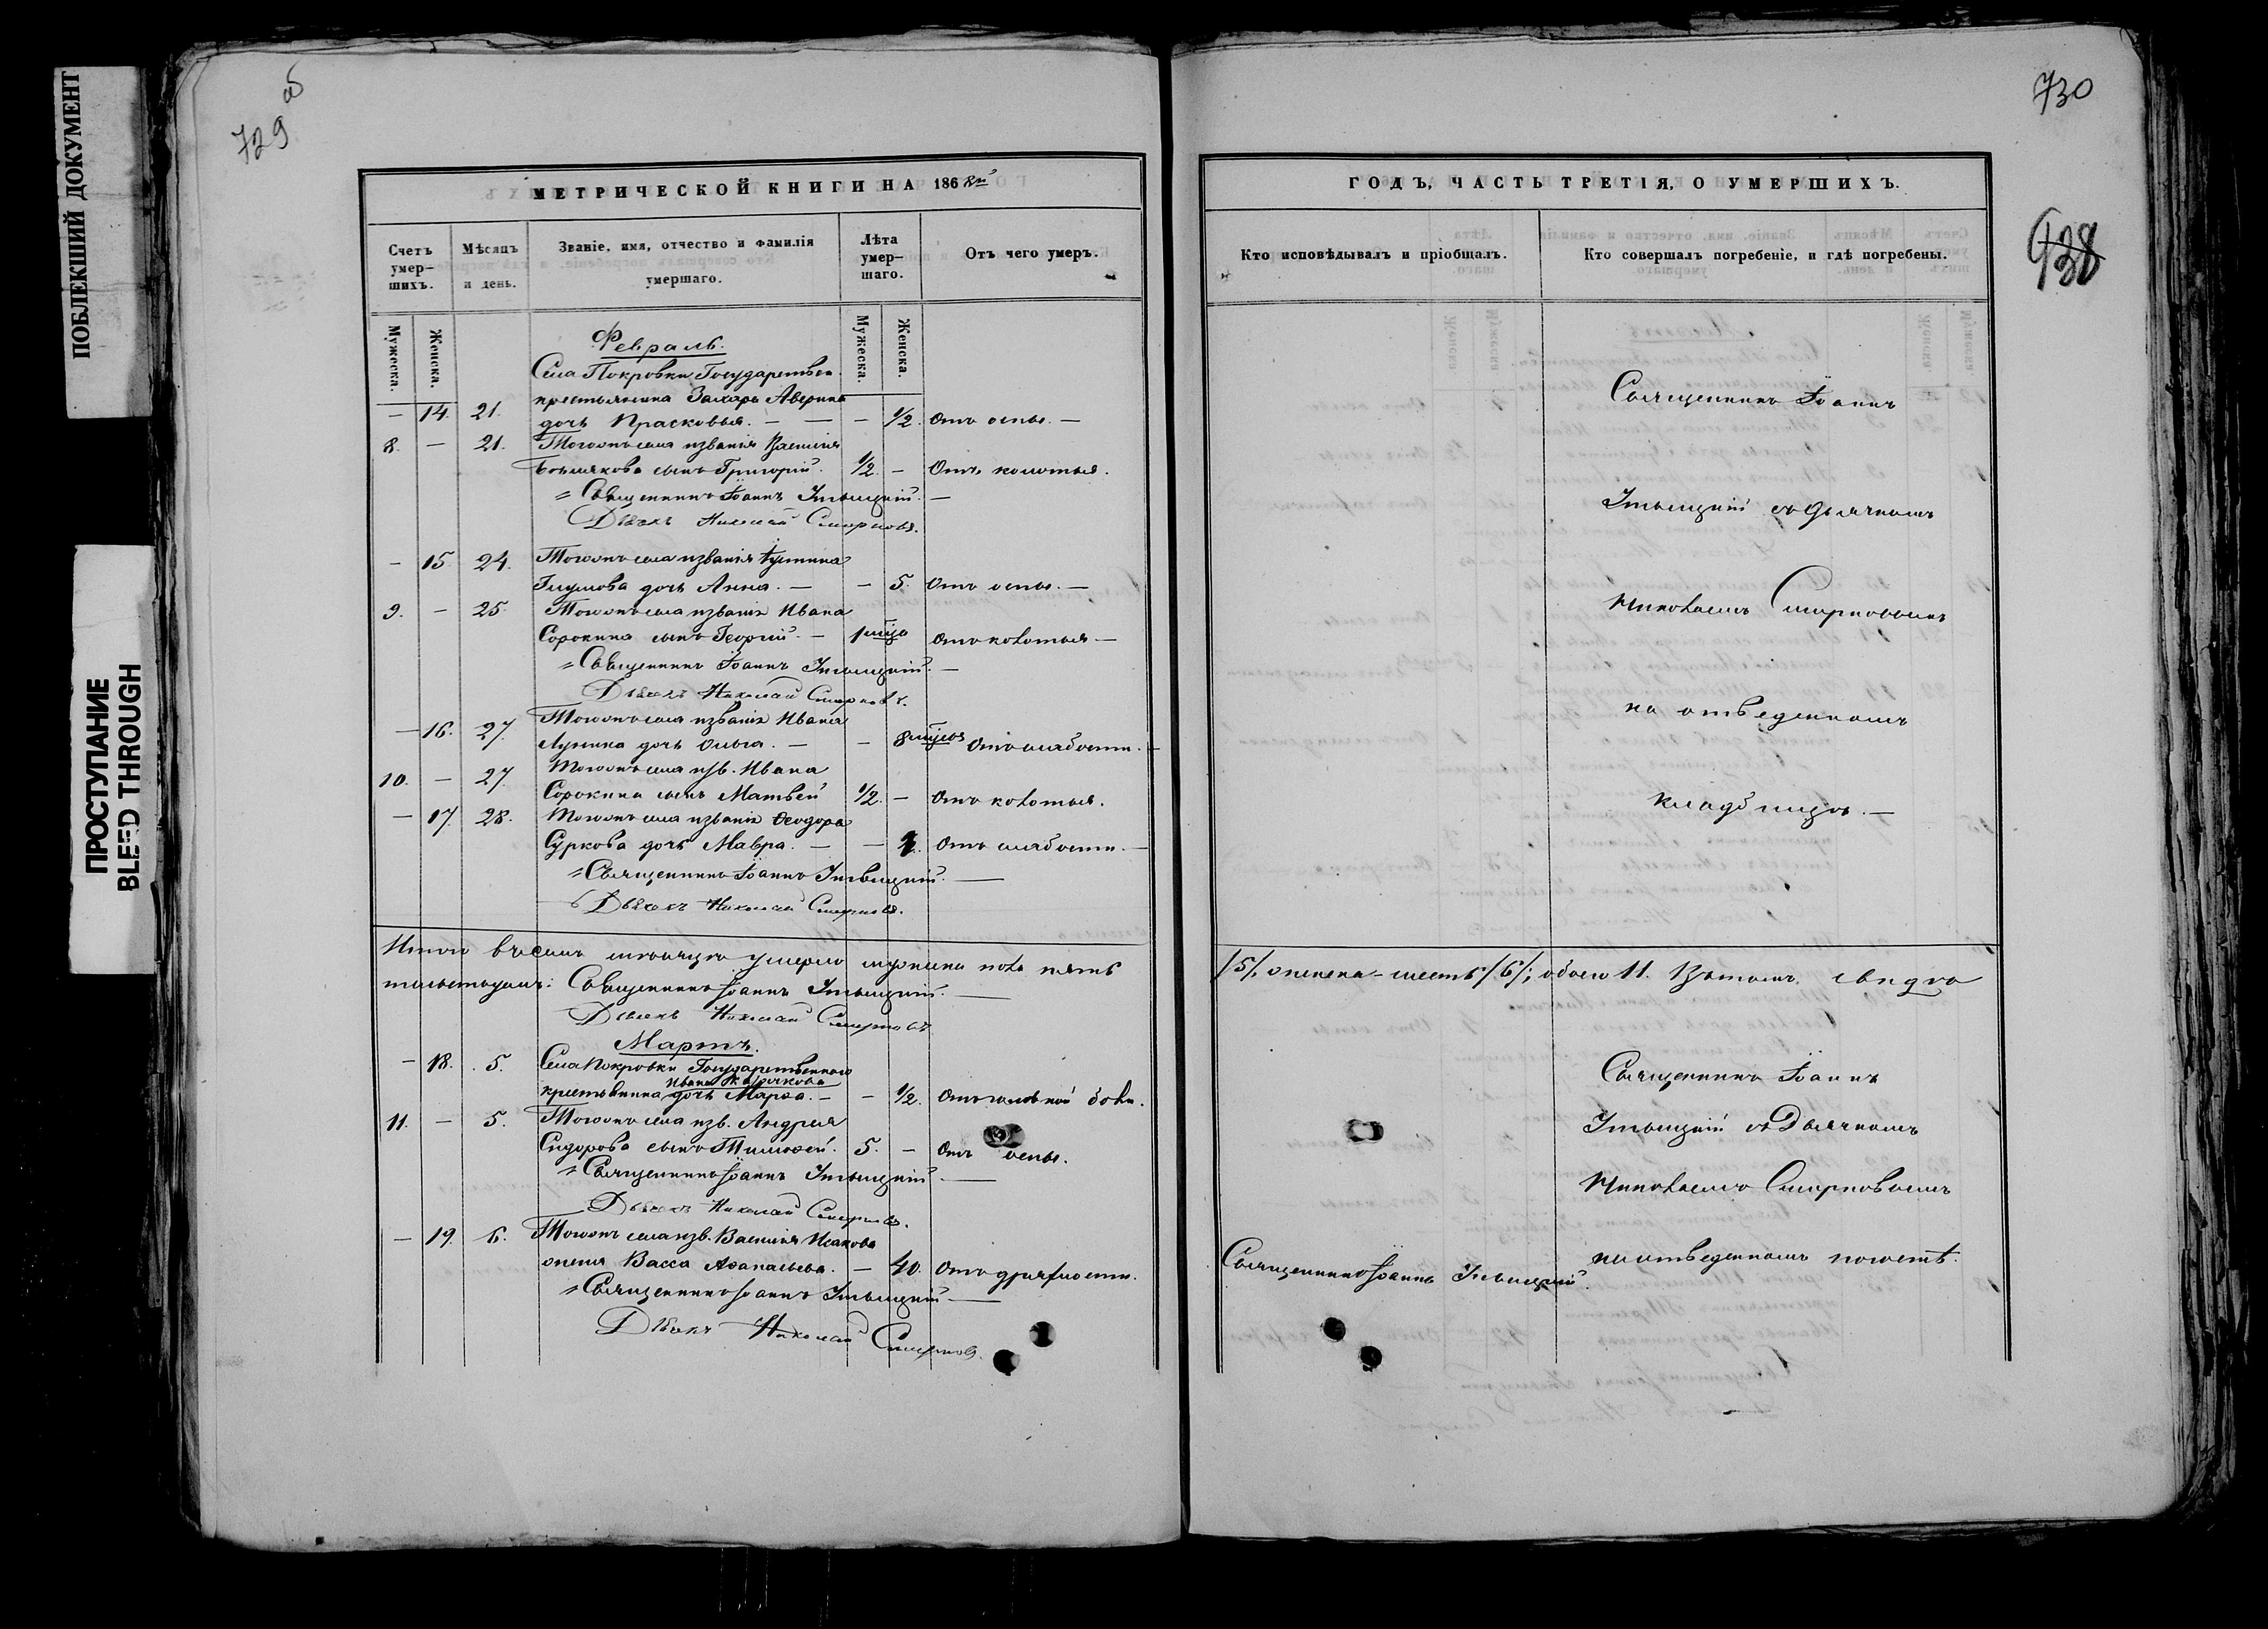 ПОБЛЕКШИЙ ДОКУМЕНТ
ПРОСТУПАНИЕ
BLEED THROUGH
729 об
МЕТРИЧЕСКОЙ КНИГИ НА 1868й
Счетъ умер-шихъ.
Мѣсяцъ и день.
Званіе, имя, отчество и фамилія умершаго.
Лѣта умер-шаго.
Отъ чего умеръ.
Мужеска.
Женска.
Мужеска.
Женска.
Февраль.
Села Покровки Государствен.
крестьянина Захара Аверина
— 14. 21. дочь Прасковья. — — — 1/2. Отъ оспы. —
8. — 21. Тогожъ села и званія Василія
сынъ Григорій. 1/2. — Отъ колотья.
Священникъ Іоаннъ
Дьячекъ Николай Смирновъ.
— 15. 24. Тогожъ села и званія
дочь Анна. — — 5. Отъ оспы. —
9. — 25. Тогожъ села и званія Ивана
Сорокина сынъ Георгій. — 1 мѣсяц Отъ колотья —
Священникъ Іоаннъ
Дьячекъ Николай Смирновъ.
— 16. 27. Тогожъ села и званія Ивана
Лунина дочь Ольга. — — 8 Отъ слабости. —
10. — 27. Тогожъ села и зв. Ивана
Сорокина сынъ Матвей 1/2. — Отъ колотья.
— 17. 28. Тогожъ села и званія Ѳеодора
Суркова дочь Мавра. — — 1. Отъ слабости. —
Священникъ Іоаннъ
Дьячекъ Николай Смирновъ.
Итого въ семъ мѣсяцѣ умерло мужеска пола пять
Священникъ Іоаннъ
Дьячекъ Николай Смирновъ.
Мартъ.
— 18. 5. Села Покровки Государственнаго
крестьянина Ивана дочь Марѳа. — — 1/2. Отъ головной боли.
11. — 5. Тогожъ села и зв. Андрея
Сидорова сынъ Тимоѳей. 5. — Отъ оспы.
Священникъ Іоаннъ
Дьячекъ Николай Смирновъ.
— 19. 6. Тогожъ села и зв. Василія Исакова
жена Васса Аѳанасьева. — 40. Отъ дряхлости.
Священникъ Іоаннъ
Дьячекъ Николай Смирновъ.
730
938
ГОДЪ, ЧАСТЬ ТРЕТІЯ, О УМЕРШИХЪ.
Кто исповѣдывалъ и пріобщалъ.
Кто совершалъ погребеніе, и гдѣ погребены.
Священникъ Іоаннъ
съ дьячкомъ
Николаемъ Смирновымъ
на отведенномъ
кладбищѣ. —
/5/, женска - шесть /6/; обоего 11. Въ томъ
Священникъ Іоаннъ
съ Дьячкомъ
Николаемъ Смирновымъ
на отведенномъ погостѣ.
Священникъ Іоаннъ